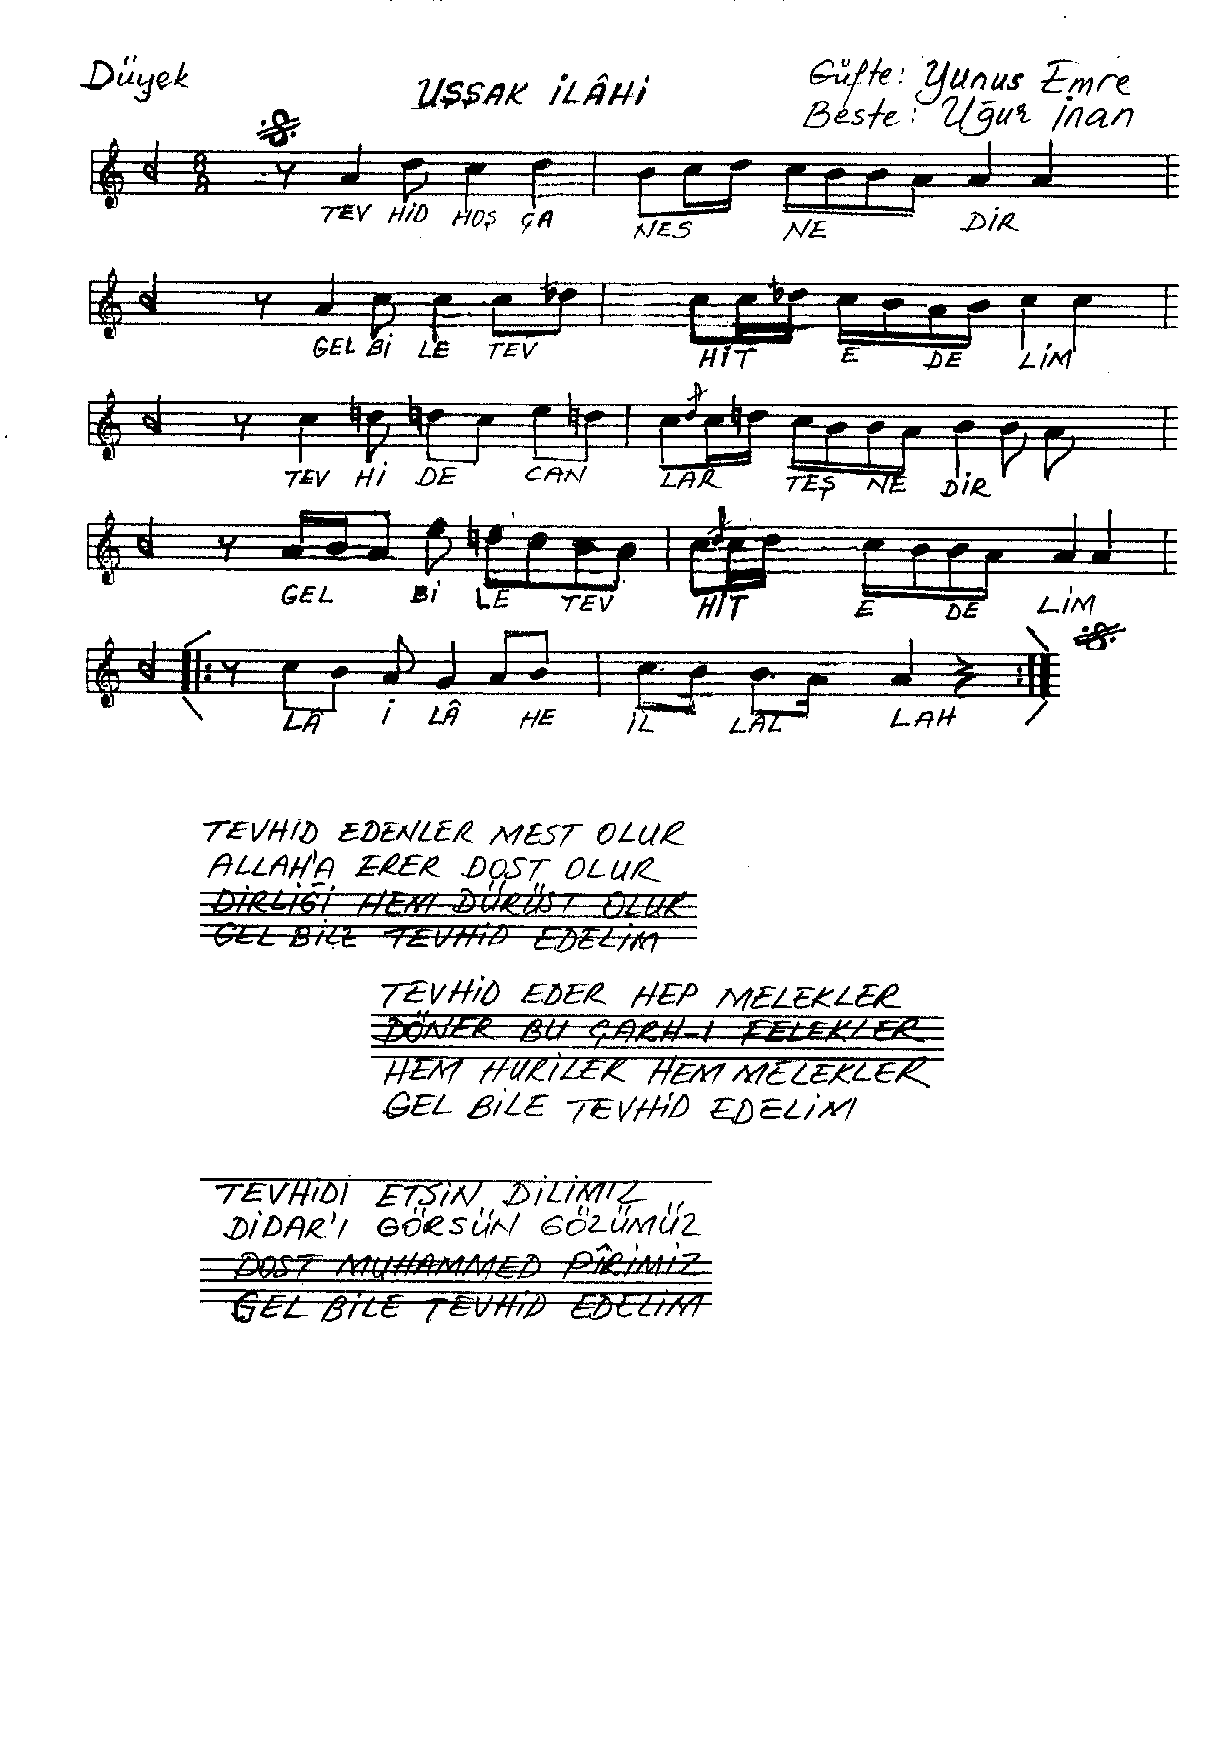 Düyek
UŞŞAK İLÂHİ
Güfte: Yunus Emre
Beste: Uğur İnan
8
8
TEV HİD HOŞ ÇA NES NE DİR
GEL Bİ LE TEV HİT E DE LİM
TEV Hİ DE CAN LAR TEŞ NE DİR
GEL Bİ LE TEV HİT E DE LİM
LÂ İ LÂ HE İL LÂL LAH
TEVHİD EDENLER MEST OLUR
ALLAH'A ERER DOST OLUR
DİRLİĞİ HEM DÜRÜST OLUR
GEL BİLE TEVHİD EDELİM
TEVHİD EDER HEP MELEKLER
DÖNER BU ÇARH-I FELEKLER
HEM HURİLER HEM MELEKLER
GEL BİLE TEVHİD EDELİM
TEVHİDİ ETSİN DİLİMİZ
DİDAR'I GÖRSÜN GÖZÜMÜZ
DOST MUHAMMED PÎRİMİZ
GEL BİLE TEVHİD EDELİM